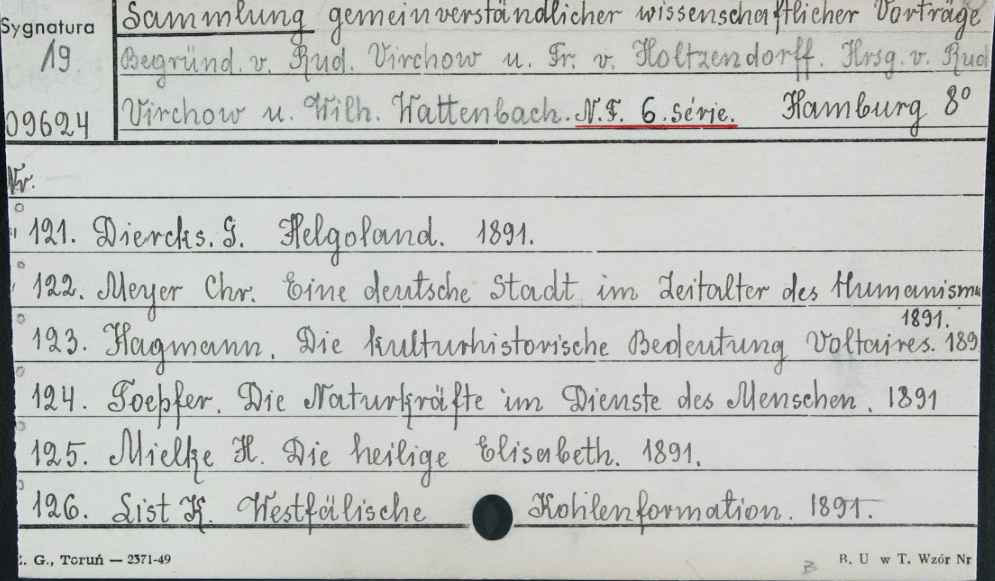 Sygnatura
19
09624
Sammlung gemeinverständlicher wissenschaftlicher Vorträge
Begründ. v. Rud. Virchow u. Fr. v. Holtzendorff. Hrsg. v. Rud
Virchow u. Wilh. Wattenbach. N.F. 6. Serie. Hamburg 8°
Nr.
121. Diercks. G. Helgoland. 1891.
122. Meyer Chr. Eine deutsche Stadt im Zeitalter des Humanismu
1891.
123. Hagmann. Die kulturhistorische Bedeutung Voltaires. 189
124. Toepfer. Die Naturkräfte im Dienste des Menschen. 1891
125. Mielke H. Die heilige Elisabeth. 1891.
126. List K. Westfälische Kohlenformation. 1891.
. G., Toruń — 2371-49
B. U w T. Wzór Nr
B